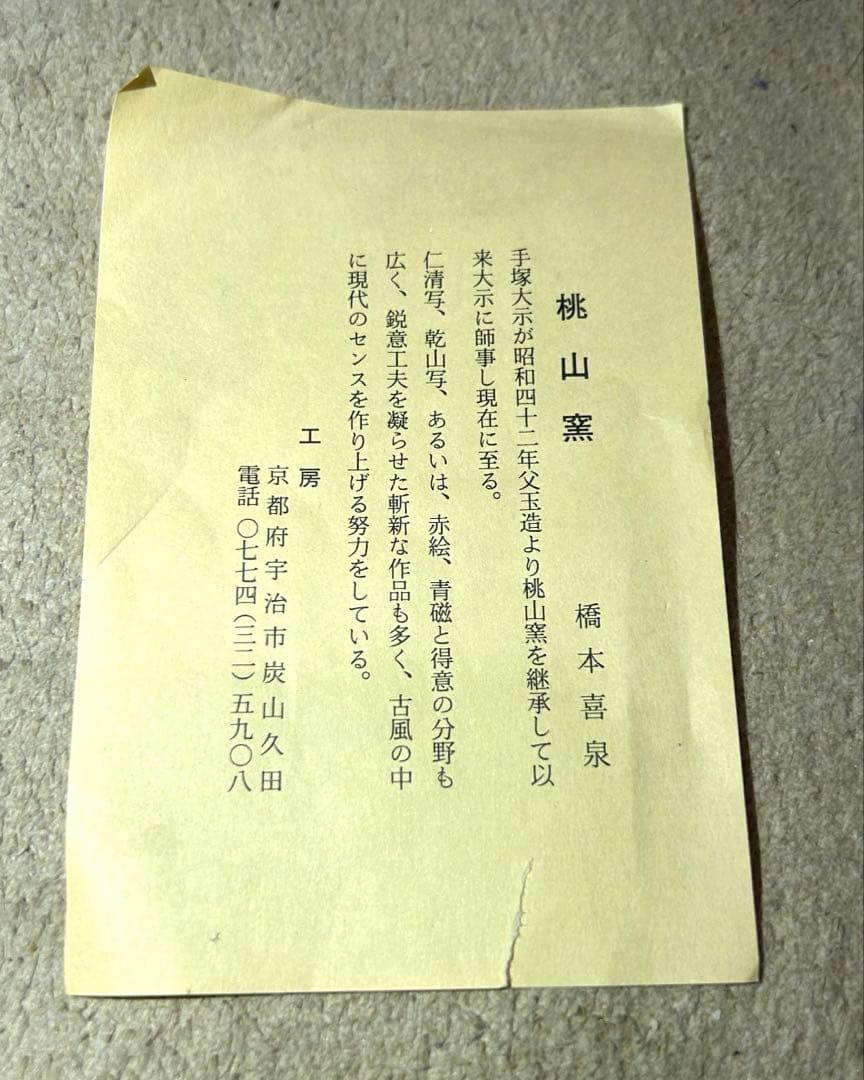 桃山窯
橋本喜泉
手塚大示が昭和四十二年父玉造より桃山窯を継承して以
来大示に師事し現在に至る。
仁清写、乾山写、あるいは、赤絵、青磁と得意の分野も
広く、鋭意工夫を凝らせた斬新な作品も多く、古風の中
に現代のセンスを作り上げる努力をしている。
工房
京都府宇治市炭山久田
電話〇七七四(三二)五九〇八